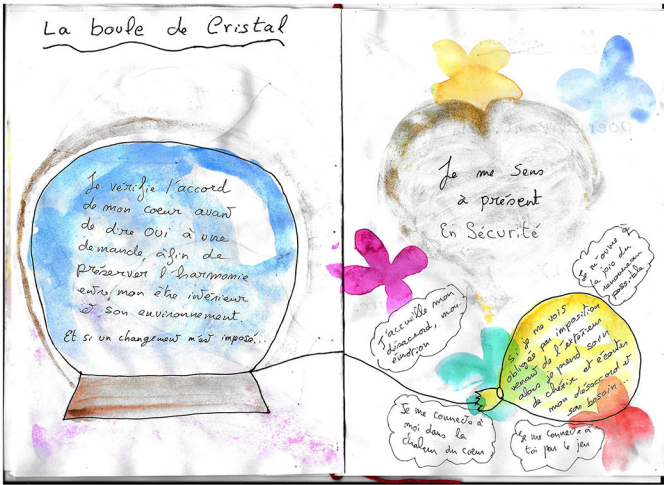 La boule de Cristal
Je verifie l'accord
de mon coeur avant
de dire OUI à une
demande, àfin de
préserver l'harmonie
entre mon être intérieur
et son environnement
Et si un changement m'est imposé...
Je me Sens
à présent
En Sécurité
Je m'ouvre à
la joie du
renouveau
possible
J'accueille mon
désaccord, mon
émotion
Si je me vois
obligée par imposition
venant de l'extérieur
alors je prend soin
de chérir et écouter
mon désaccord et
son besoin...
Je me connecte à
moi dans la
chaleur du coeur
Je me connecte à
toi par le jeu